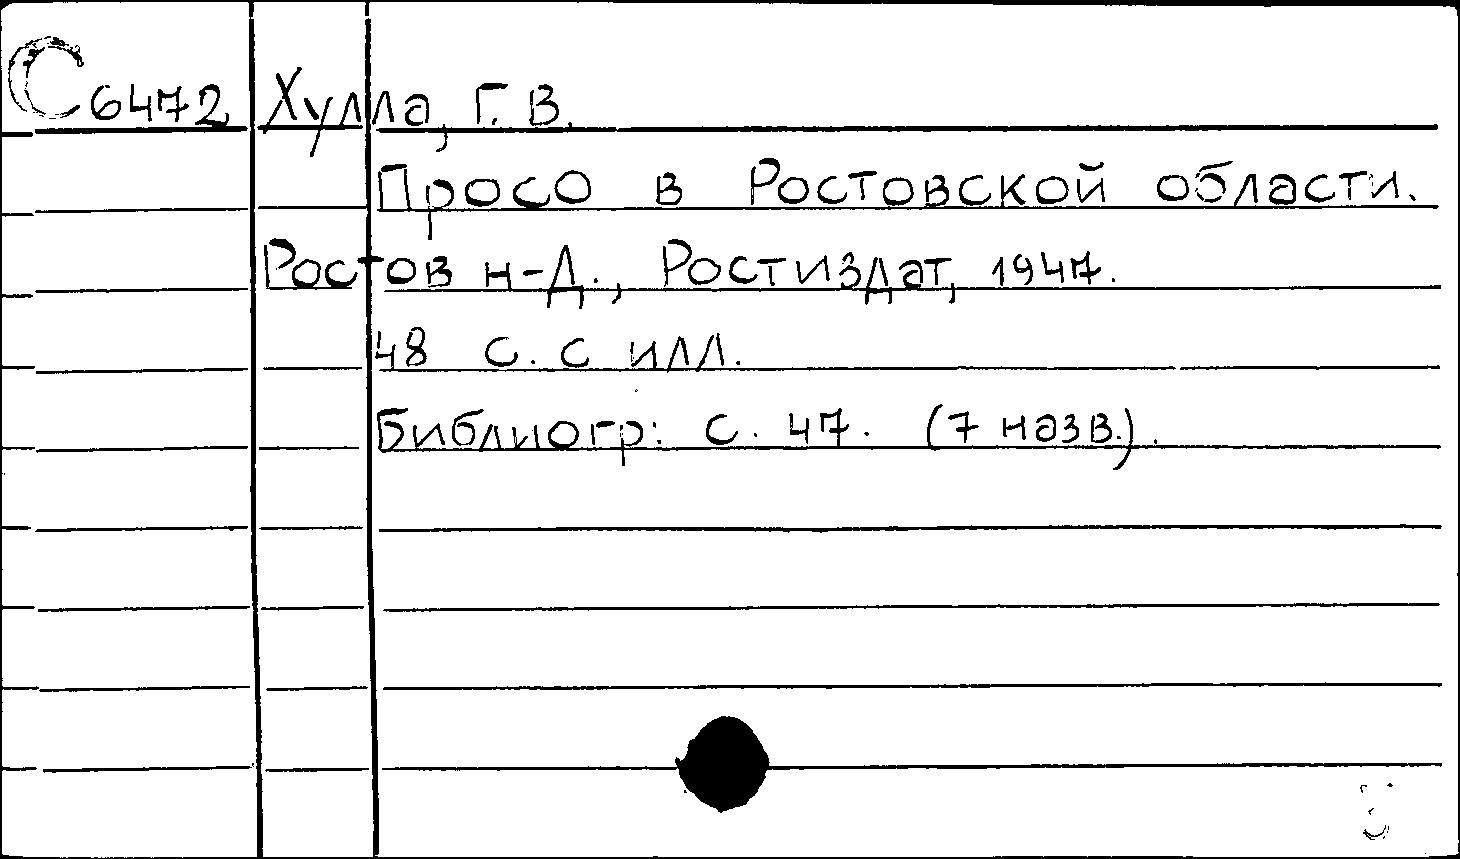 С 6472 Хулла, Г. В.
Просо в Ростовской области.
Ростов н-Д., Ростиздат, 1947.
48 с. с илл.
Библиогр: с. 47. (7 назв.).